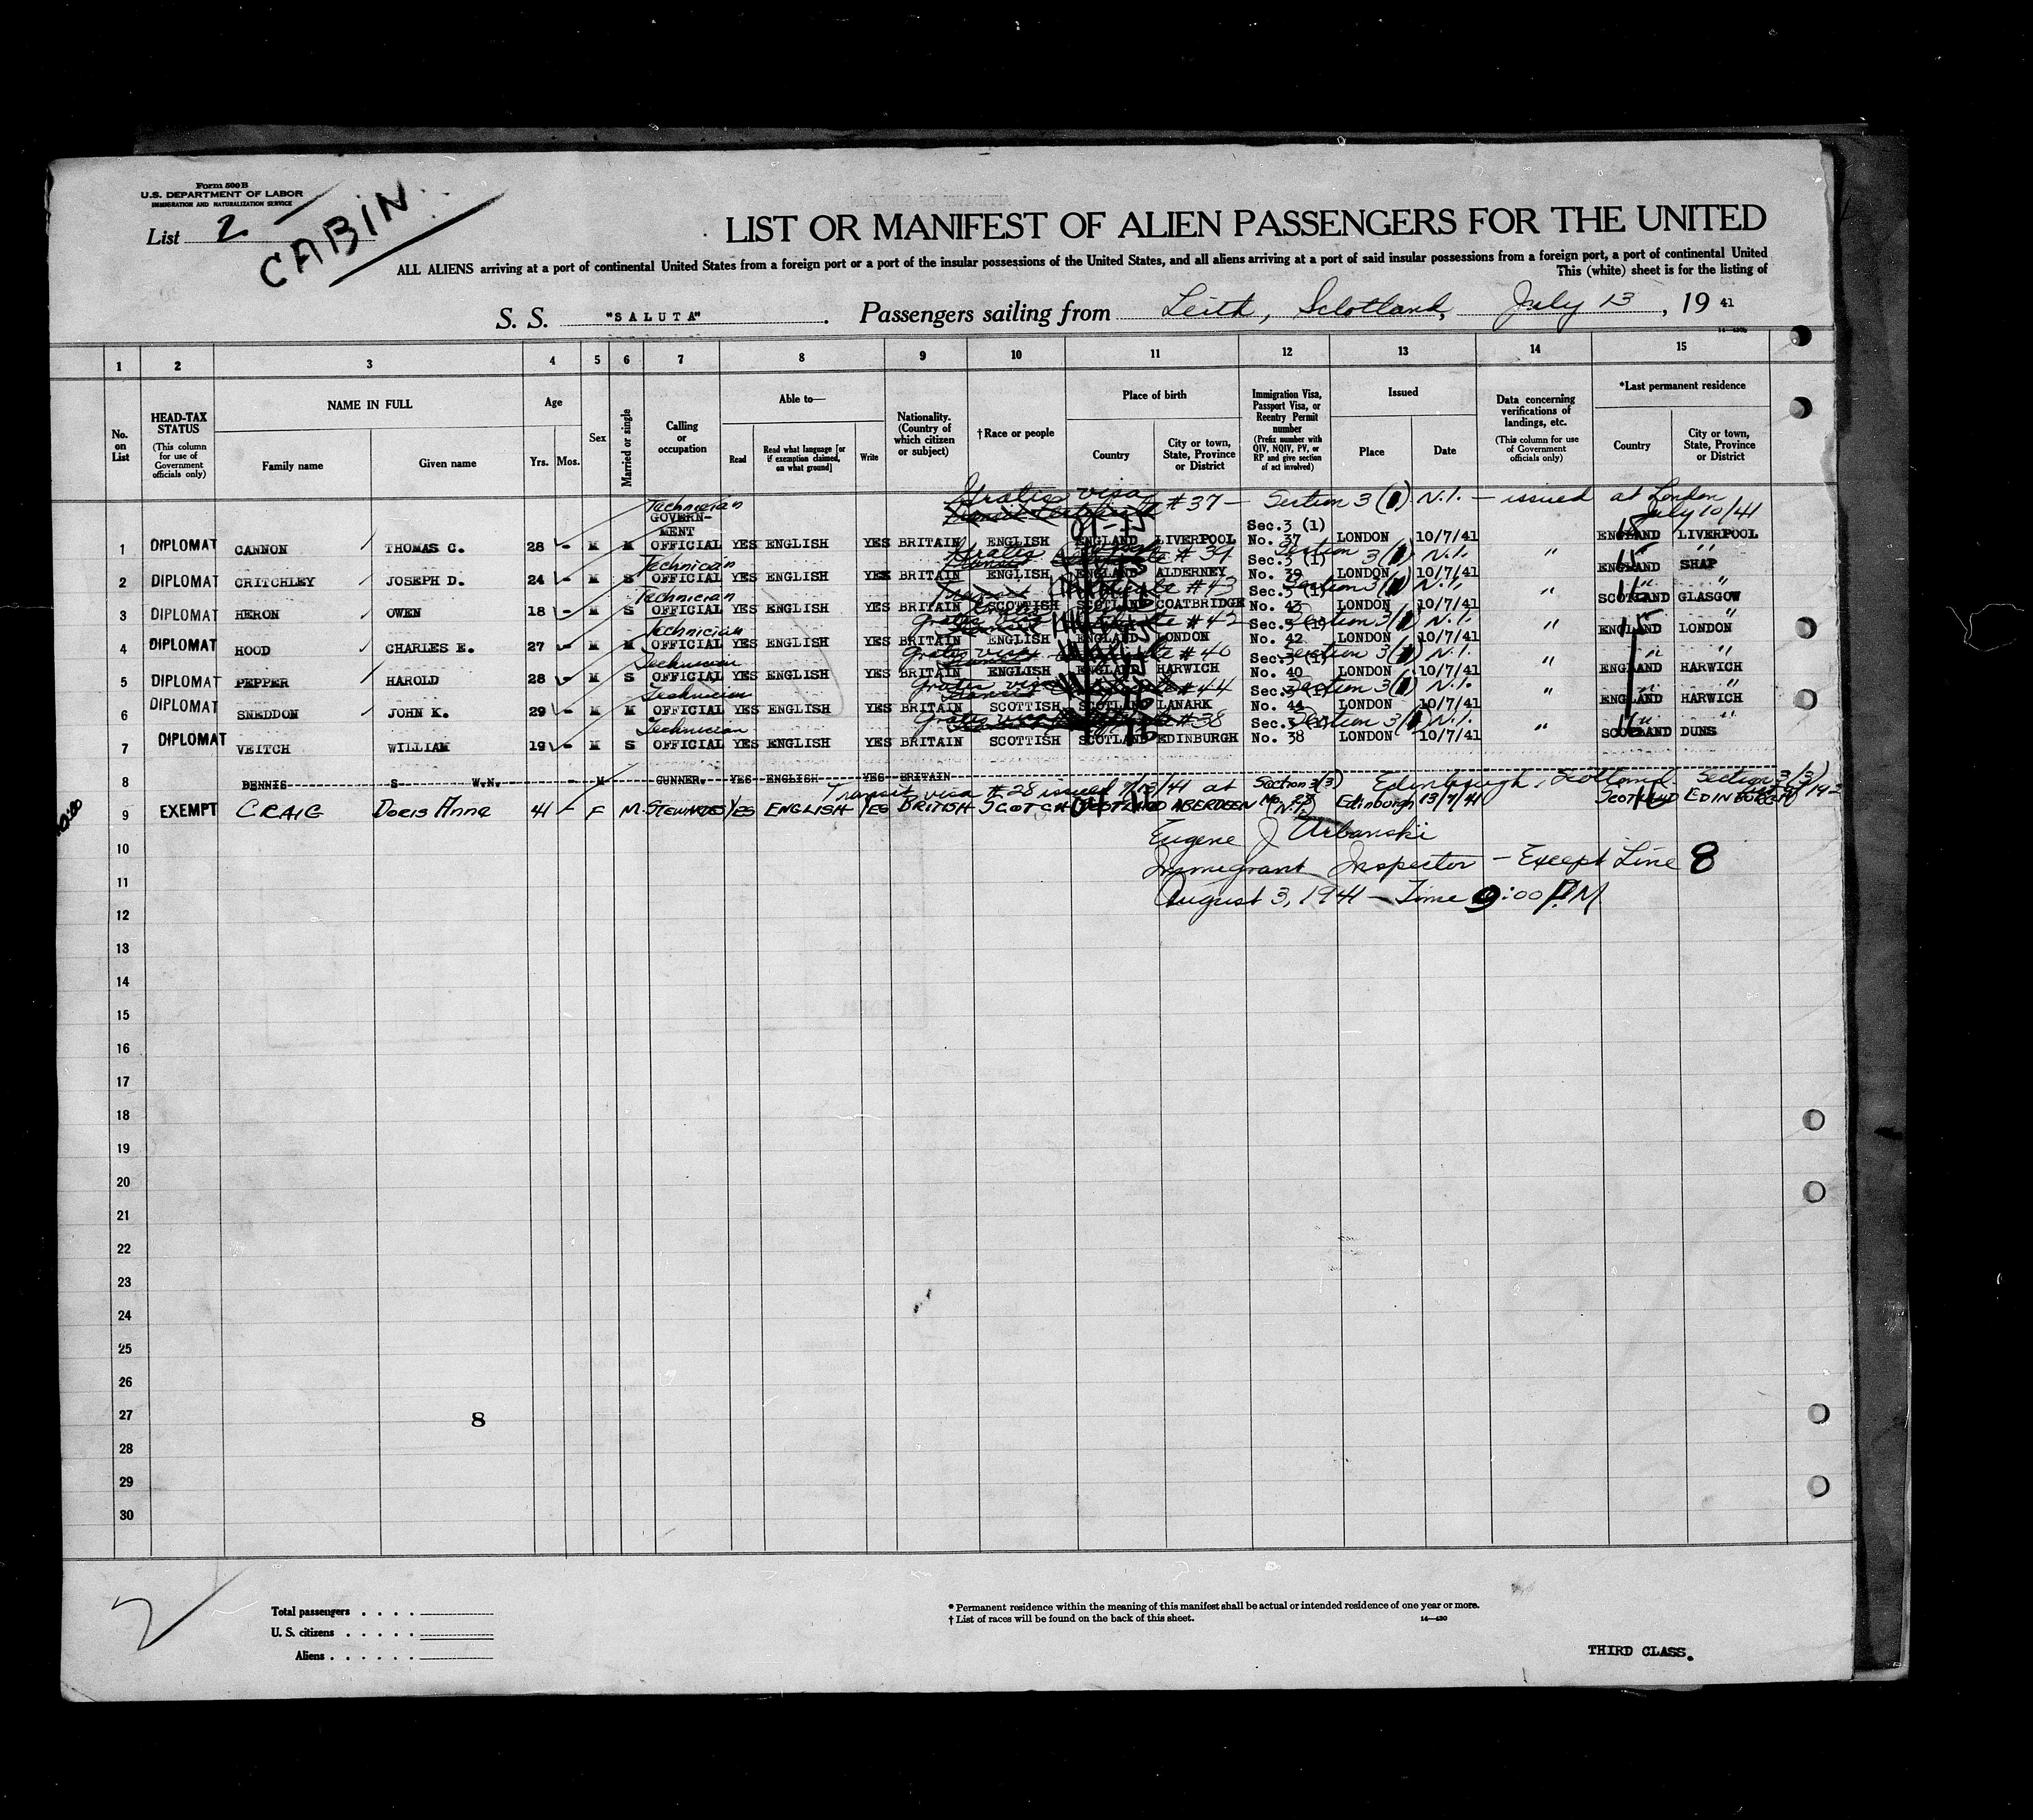 Form 500 B
U.S. DEPARTMENT OF LABOR
IMMIGRATION AND NATURALIZATION SERVICE
List 2
CABIN
LIST OR MANIFEST OF ALIEN PASSENGERS FOR THE UNITED
ALL ALIENS arriving at a port of continental United States from a foreign port or a port of the insular possessions of the United States, and all aliens arriving at a port of said insular possessions from a foreign port, a port of continental United
This (white) sheet is for the listing of
S. S. "SALUTA". Passengers sailing from Leith, Sclotland, July 13, 19 41
1 2 3 4 5 6 7 8 9 10 11 12 13 14 15
No. on List
HEAD-TAX STATUS (This column for use of Government officials only)
NAME IN FULL
Family name Given name
Age
Yrs. Mos.
Sex
Married or single
Calling or occupation
Able to—
Read Read what language [or if exemption claimed, on what ground] Write
Nationality. (Country of which citizen or subject)
†Race or people
Place of birth
Country City or town, State, Province or District
Immigration Visa, Passport Visa, or Reentry Permit number (Prefix number with QIV, NQIV, PV, or RP and give section of act involved)
Issued
Place Date
Data concerning verifications of landings, etc. (This column for use of Government officials only)
*Last permanent residence
Country City or town, State, Province or District
Technician Gratis visa #37 — Section 3 (1) N.I. — issued at London July 10/41
1 DIPLOMAT CANNON THOMAS C. 28 - M M GOVERN-MENT OFFICIAL YES ENGLISH YES BRITAIN ENGLISH ENGLAND LIVERPOOL Sec.3 (1) No. 37 LONDON 10/7/41 ENGLAND LIVERPOOL
Technician Gratis # 39 Section 3(1) N.I. " "
2 DIPLOMAT CRITCHLEY JOSEPH D. 24 - M S OFFICIAL YES ENGLISH YES BRITAIN ENGLISH ENGLAND ALDERNEY Sec.3 (1) No. 39 LONDON 10/7/41 ENGLAND SHAP
Technician # 43 Section 3(1) N.I. " " "
3 DIPLOMAT HERON OWEN 18 - M S OFFICIAL YES ENGLISH YES BRITAIN SCOTTISH SCOTLAND COATBRIDGE Sec.3 (1) No. 43 LONDON 10/7/41 SCOTLAND GLASGOW
Technician Gratis visa # 42 Section 3(1) N.I. " "
4 DIPLOMAT HOOD CHARLES E. 27 - M M OFFICIAL YES ENGLISH YES BRITAIN ENGLISH ENGLAND LONDON Sec.3 (1) No. 42 LONDON 10/7/41 ENGLAND LONDON
Technician Gratis visa # 40 Section 3(1) N.I. " " "
5 DIPLOMAT PEPPER HAROLD 28 - M S OFFICIAL YES ENGLISH YES BRITAIN ENGLISH ENGLAND HARWICH Sec.3 (1) No. 40 LONDON 10/7/41 ENGLAND HARWICH
Technician Gratis visa #44 Section 3(1) N.I. " " "
6 DIPLOMAT SNEDDON JOHN K. 29 - M M OFFICIAL YES ENGLISH YES BRITAIN SCOTTISH SCOTLAND LANARK Sec.3 No. 44 LONDON 10/7/41 ENGLAND HARWICH
Technician Gratis visa #38 Section 3(1) N.I. " " "
7 DIPLOMAT VEITCH WILLIAM 19 - M S OFFICIAL YES ENGLISH YES BRITAIN SCOTTISH SCOTLAND EDINBURGH Sec.3 No. 38 LONDON 10/7/41 SCOTLAND DUNS
8 DENNIS S W.N. - M GUNNER. YES ENGLISH YES BRITAIN
Transit visa # 28 issued 7/13/41 at Edinburgh, Scotland Section 3(3)
9 EXEMPT CRAIG Doris Anne 41 - F M. STEWARDES YES ENGLISH YES BRITISH SCOTCH SCOTLAND ABERDEEN Section 3(3) No. 28 (N.I.) Edinburgh 13/7/41 SCOTLAND EDINBURGH
10 Eugene J Urbanski
11 Immigrant Inspector — Except Line 8
12 August 3, 1941 — Time 9:00 P.M.
13
14
15
16
17
18
19
20
21
22
23
24
25
26
27 8
28
29
30
2
Total passengers . . . .
U. S. citizens . . . . .
Aliens . . . . . .
* Permanent residence within the meaning of this manifest shall be actual or intended residence of one year or more.
† List of races will be found on the back of this sheet. 14—430
THIRD CLASS.